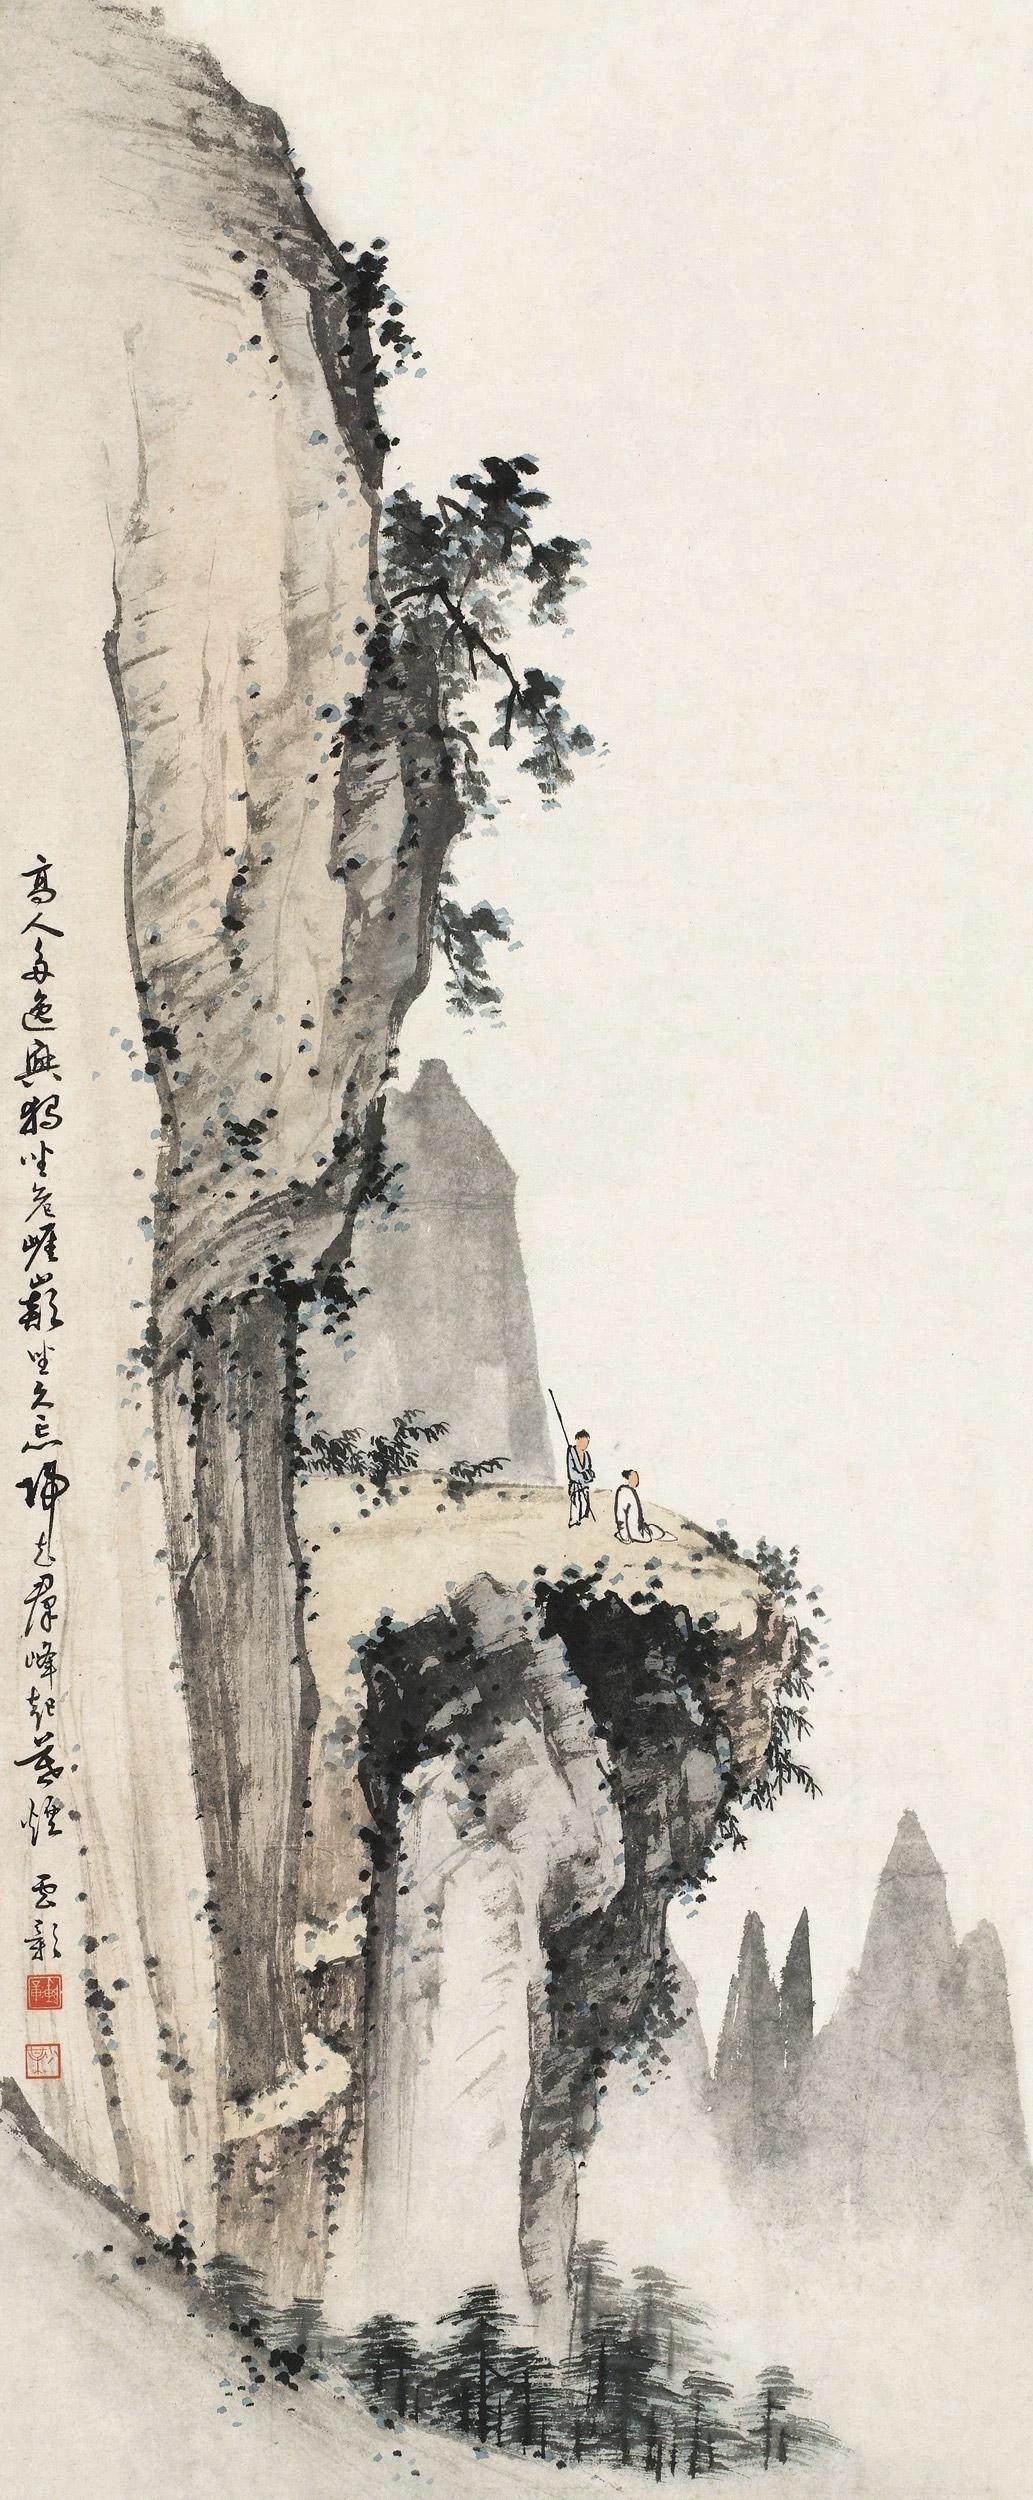 高人多逸興獨坐危崕巔坐久忘歸去羣峰起暮煙
雲彰